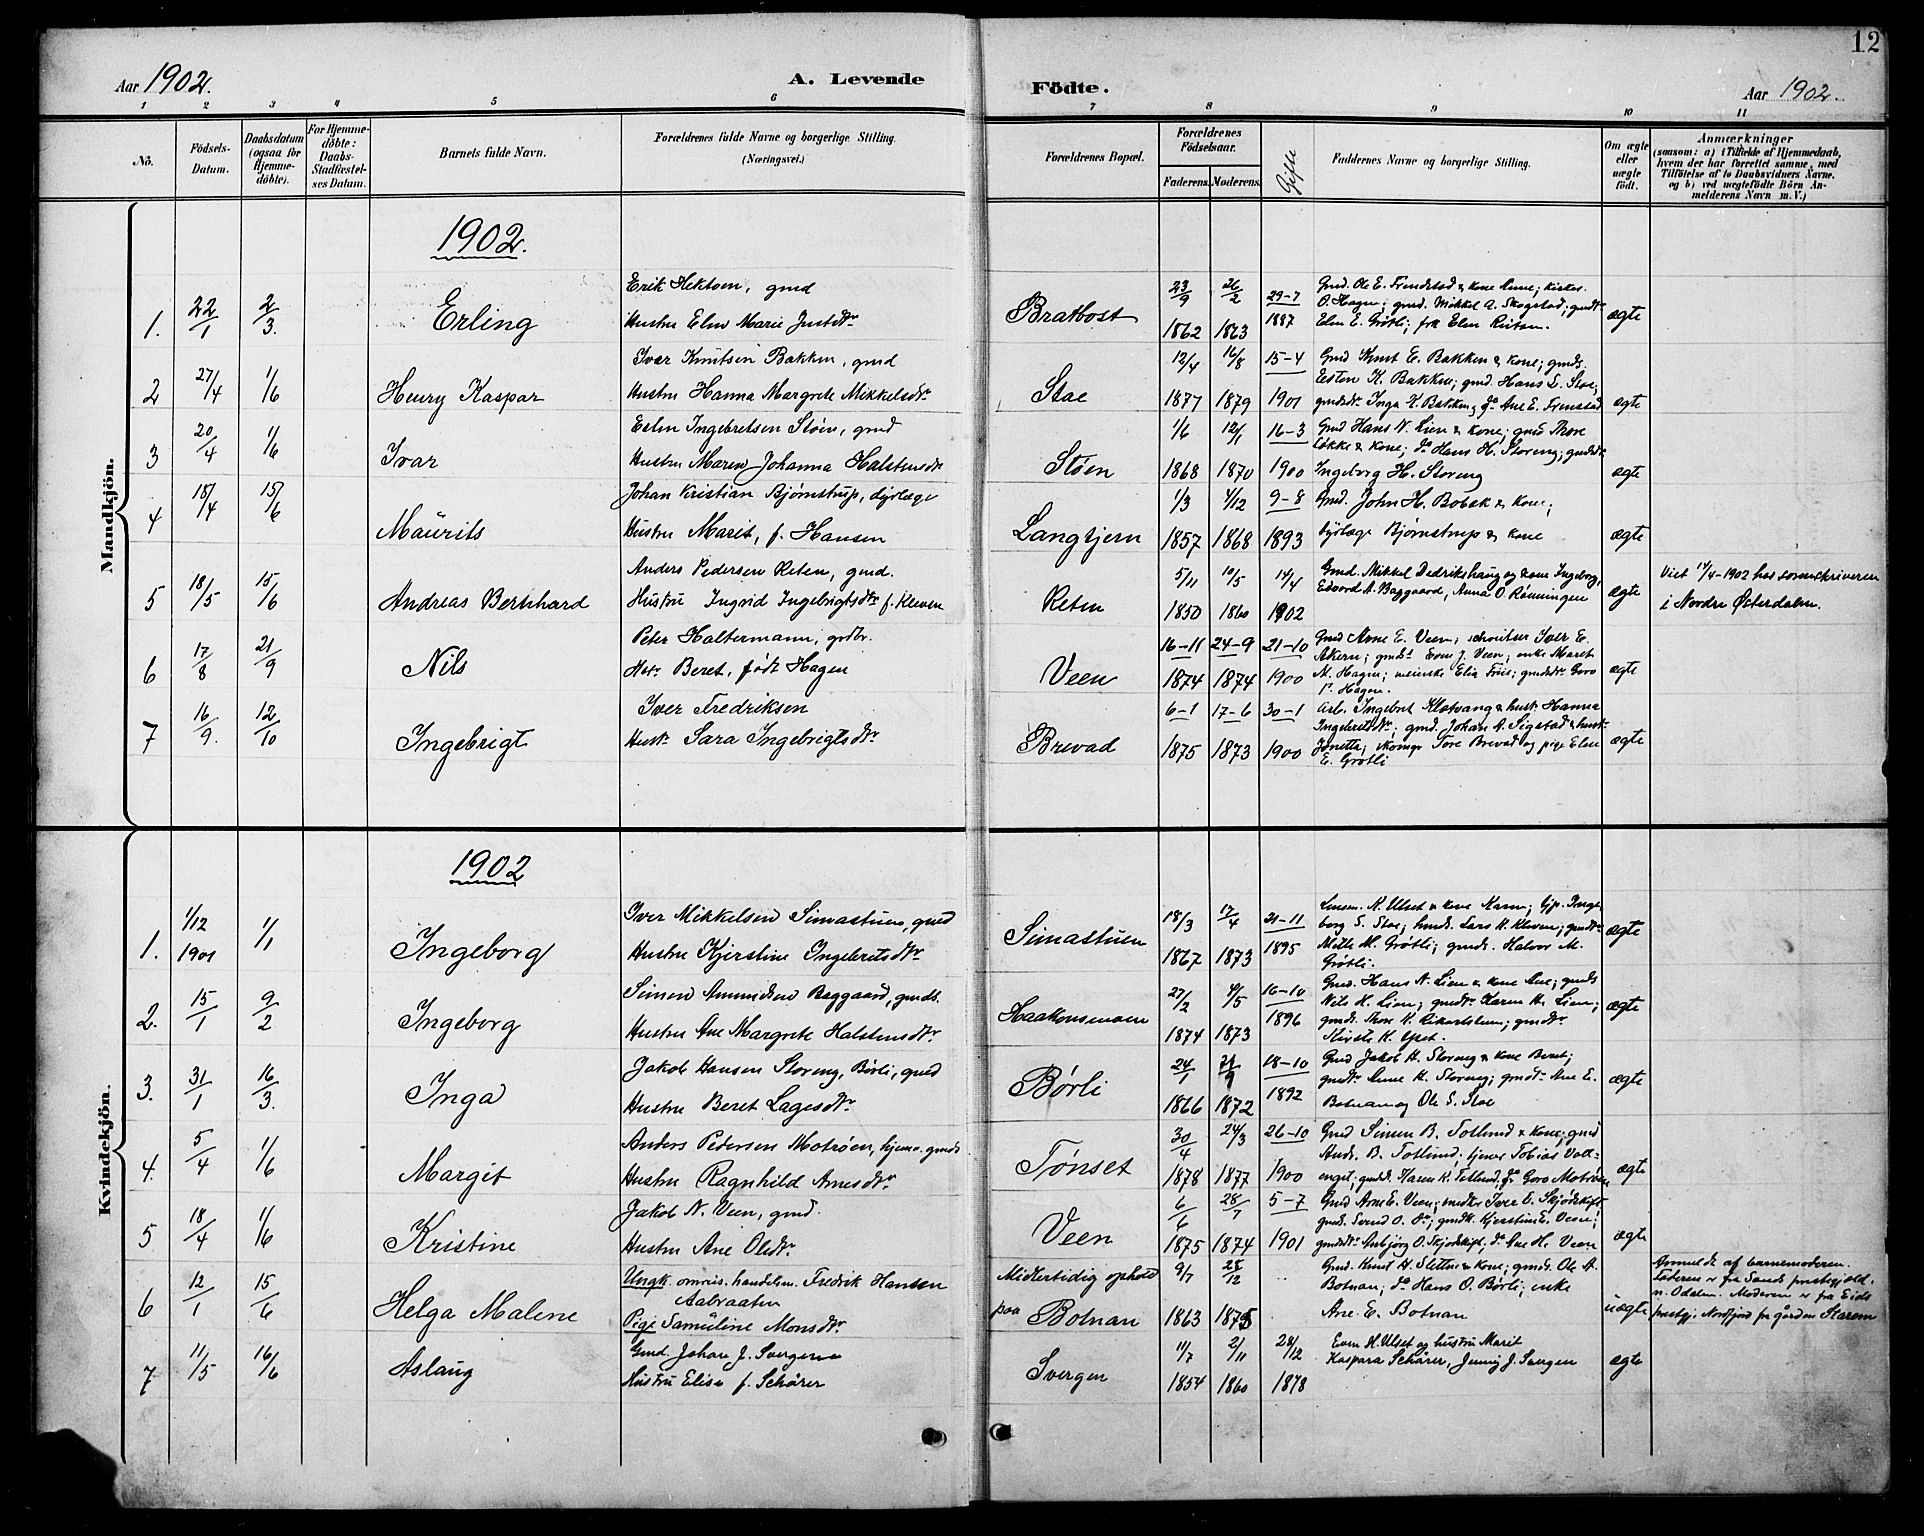 12
Aar 1902.
A. Levende
Födte.
Aar 1902.
1 2 3 4 5 6 7 8 9 10 11
No.
Födsels-
Datum.
Daabsdatum
(ogsaa for
Hjemme-
döbte).
For Hjemme-
döbte:
Daabs-
Stadfæstel-
ses Datum.
Barnets fulde Navn.
Forældrenes fulde Navne og borgerlige Stilling.
(Næringsvei.)
Forældrenes Bopæl.
Forældrenes
Födselsaar.
Faderens. Moderens.
Gifte
Faddernes Navne og borgerlige Stilling.
Om ægte
eller
uægte
födt.
Anmærkninger
(saasom: a) i Tilfælde af Hjemmedaab,
hvem der har forrettet samme, med
Tilföielse af to Daabsvidners Navne.
og b) ved uægtefödte Börn An-
melderens Navn m. V.)
Mandkjön.
1902.
1. 22/1 2/3. Erling
Erik Hektoen, gmd
Hustru Elen Marie Jensdtr
Bratbost
23/9 1862 26/2 1863 29-7 1887
Gmd. Ole E. Fremstad & kone Anne; kirkes.
O. Hagen; gmd. Mikkel A. Skogstad; gmdtr
Elen E. Grøtli; frk Elen
ægte
2 27/4 1/6 Henry Kaspar
Ivar Knutsen Bakken, gmd
Hustru Hanna Margrete Mikkelsdtr
Stae
12/4 1877 16/8 1879 15-4 1901
Gmd Knut E. Bakken & kone; gmds.
Esten K. Bakken; gmd. Hans L. Stoe;
gmdsdtr Inga K. Bakken, do Ane E. Fremstad
ægte
3 20/4 1/6 Ivar
Esten Ingebretsen Støen, gmd
Hustru Maren Johanna Halstensdtr
Støen
1/6 1868 12/1 1870 16-3 1900
Gmd Hans N. Lien & kone; gmd Thore
Løkke & kone; do Hans H. Storeng; gmdsdtr
Ingeborg H. Storeng
ægte
4 18/4 15/6 Maurits
Johan Kristian Bjørnstrup, dyrlæge
Hustru Marit, f. Hansen
Langtjern
1/3 1857 4/12 1868 9-8 1893
Gmd. John H. Bobek & kone;
dyrlæge Bjørnstrup & kone
ægte
5 18/5 15/6 Andreas Bernhard
Anders Pedersen Reten, gmd.
Hustru Ingrid Ingebrigtsdtr f. Kleven
Reten
5/11 1850 10/5 1860 14/4 1902
Gmd. Mikkel Dedrikshaug og kone Ingeborg,
Edvard A. Baggaard, Anna O. Rønningen
ægte
Viet 14/4-1902 hos sorenskriveren
i Nordre Østerdalen.
6 17/8 21/9 Nils
Peter Haltermann, grdbr.
Hstr. Beret, født Hagen
Veen
16-11 1874 24-9 1874 21-10 1900
Gmd Arne E. Veen; Iver E.
Akern; gmds Even J. Veen; enke Maret
M. Hagen; meierske Elia Friis; gmdsdtr Goro
P. Hagen.
ægte
7 16/9. 12/10 Ingebrigt
Iver Fredriksen
Hust. Sara Ingebrigtsdtr
Brevad
6-1 1875 17-6 1873 30-1 1900
Arb. Ingebret Kløtvang & hust. Hanna
Ingebretsdtr; gmd. Johan A. Sigstad & hust.
Jonette; Tore Brevad og pige Elen
E. Grøtli
ægte
Kvindekjön.
1902
1. 1/12 1901 1/1 Ingeborg
Iver Mikkelsen Simastuen, gmd
Hustru Kjerstine Ingebretsdtr
Simastuen
18/3 1867 17/4 1873 21-11 1895
K. Ulset & kone Karen; Inge-
borg S. Stoe; hmds. Lars K. Kleven; gmdtr
Mette M. Grøtli; gmds. Halvor M.
Grøtli.
ægte
2. 15/1 9/2 Ingeborg
Simen Amundsen Baggaard, gmds.
Hustru Ane Margrete Halstensdtr
Haakonsmoen
27/2 1874 4/5 1873 16-10 1896
Gmd. Hans N. Lien & kone Ane; gmds
Nils H. Lien; gmdtr Karen H. Lien;
gmds. Thore K. ; gmdtr
K. Yset.
ægte
3. 31/1 16/3. Inga
Jakob Hansen Storeng, Børli, gmd
Hustru Beret Lagesdtr
Børli
24/1 1866 21/9 1872 18-10 1892
Gmd Jakob H. Storeng & kone Beret;
gmdtr Anne H. Storeng; gmdtr Ane E.
Botnan og Ole S. Stoe
ægte
4. 5/4 1/6 Margit
Anders Pedersen Motrøen, hjemv. gmds
Hustru Ragnhild Arnesdtr
Tønset
30/4 1878 24/3 1877 26-10 1900
Gmd Simen B. Totlund & kone; gmd
Anders B. Totlund; tjener Tobias Voll-
enget; gmdtr. Karen K. Totlund, do Goro Motrøen
ægte
5 18/4 1/6 Kristine
Jakob N. Veen, gmd.
Hustru Ane Olsdtr
Veen
6/6 1875 28/7 1874 5-7 1901
Gmd Arne E. Veen; Iver O. Skjødskift,
gmds. Svend O. do; gmdk. Kjerstine E. Veen;
gmdsdtr Anbjørg O. Skjødskift, do Ane H. Veen
ægte
6 12/1 15/6 Helga Malene
Ungk. omreis. handelsm. Fredrik Hansen
Aabraaten
Pige Samuline Monsdtr.
Midlertidig ophold
paa Botnan
9/7 1863 28/12 1875 ..
Gmd. Knut H. Slettan & kone; gmds. Ole A.
Botnan; do Hans O. Børli; enke
Ane E. Botnan
uægte
Anmeldt af barnemoderen.
Faderen er fra Sands prestegjeld.
n. Odalen. Moderen er fra Eids
prestgj. Nordfjord fra gården Starem
7 11/5 16/6 Aslaug
Gmd. Johan J. Svergen
Hustru Elise f. Schärer
Svergen
11/7 1854 2/11 1860 28/12 1878
Even H. Ulset og hustru Marit
Kaspara Schärer, Jenny J. Svergen
ægte